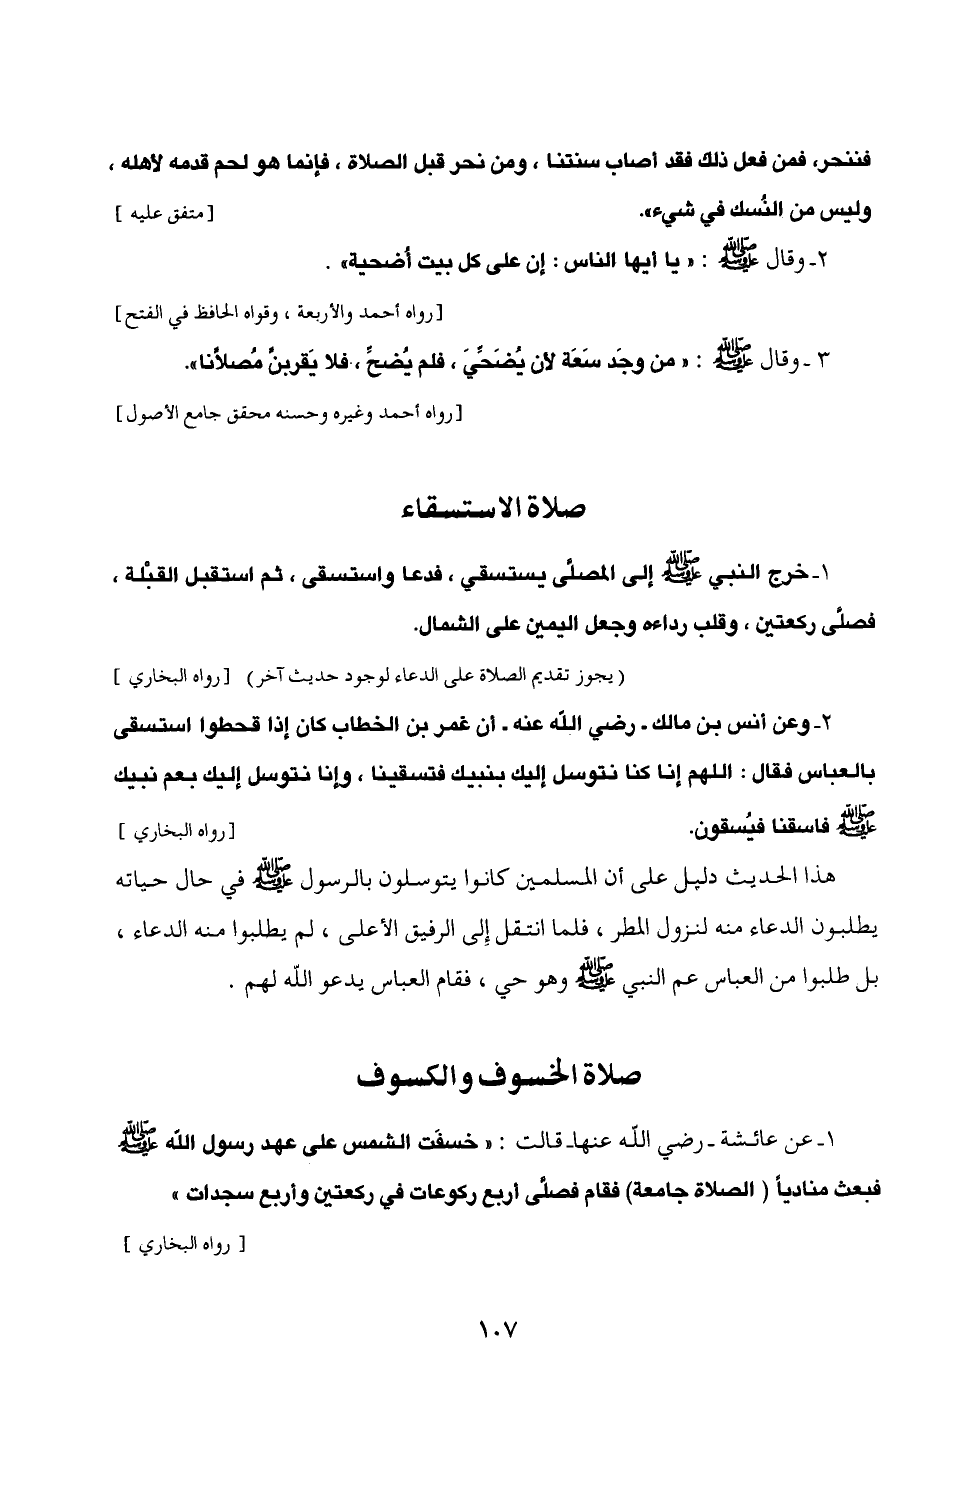 فننحر، فمن فعل ذلك فقد أصاب سنتنا ، ومن نحر قبل الصلاة ، فإنما هو لحم قدمه لأهله ،
وليس من النُسك في شيء». [متفق عليه ]
٢ـ وقال ﷺ : « يا أيها الناس : إن على كل بيت أضحية» .
[رواه أحمد والأربعة ، وقواه الحافظ في الفتح]
٣ ـ وقال ﷺ : « من وجَد سَعَة لأن يُضَحِّيَ ، فلم يُضحِّ ، فلا يَقربنَّ مُصلاَّنا».
[رواه أحمد وغيره وحسنه محقق جامع الأصول]
صلاة الاستسقاء
١ـ خرج النبي ﷺ إلى المصلَّى يستسقي ، فدعا واستسقى ، ثم استقبل القبْلة ،
فصلَّى ركعتين ، وقلب رداءه وجعل اليمين على الشمال.
( يجوز تقديم الصلاة على الدعاء لوجود حديث آخر ) [رواه البخاري ]
٢ـ وعن أنس بن مالك ـ رضي الله عنه ـ أن عُمر بن الخطاب كان إذا قحطوا استسقى
بالعباس فقال : اللهم إنا كنا نتوسل إليك بنبيك فتسقينا ، وإنا نتوسل إليك بعم نبيك
ﷺ فاسقنا فيُسقون. [رواه البخاري ]
هذا الحديث دليل على أن المسلمين كانوا يتوسلون بالرسول ﷺ في حال حياته
يطلبون الدعاء منه لنزول المطر ، فلما انتقل إلى الرفيق الأعلى ، لم يطلبوا منه الدعاء ،
بل طلبوا من العباس عم النبي ﷺ وهو حي ، فقام العباس يدعو الله لهم .
صلاة الخسوف والكسوف
١ـ عن عائشة ـ رضي الله عنها ـ قالت : « خسفَت الشمس على عهد رسول الله ﷺ
فبعث منادياً ( الصلاة جامعة) فقام فصلَّى أربع ركوعات في ركعتين وأربع سجدات »
[ رواه البخاري ]
١٠٧